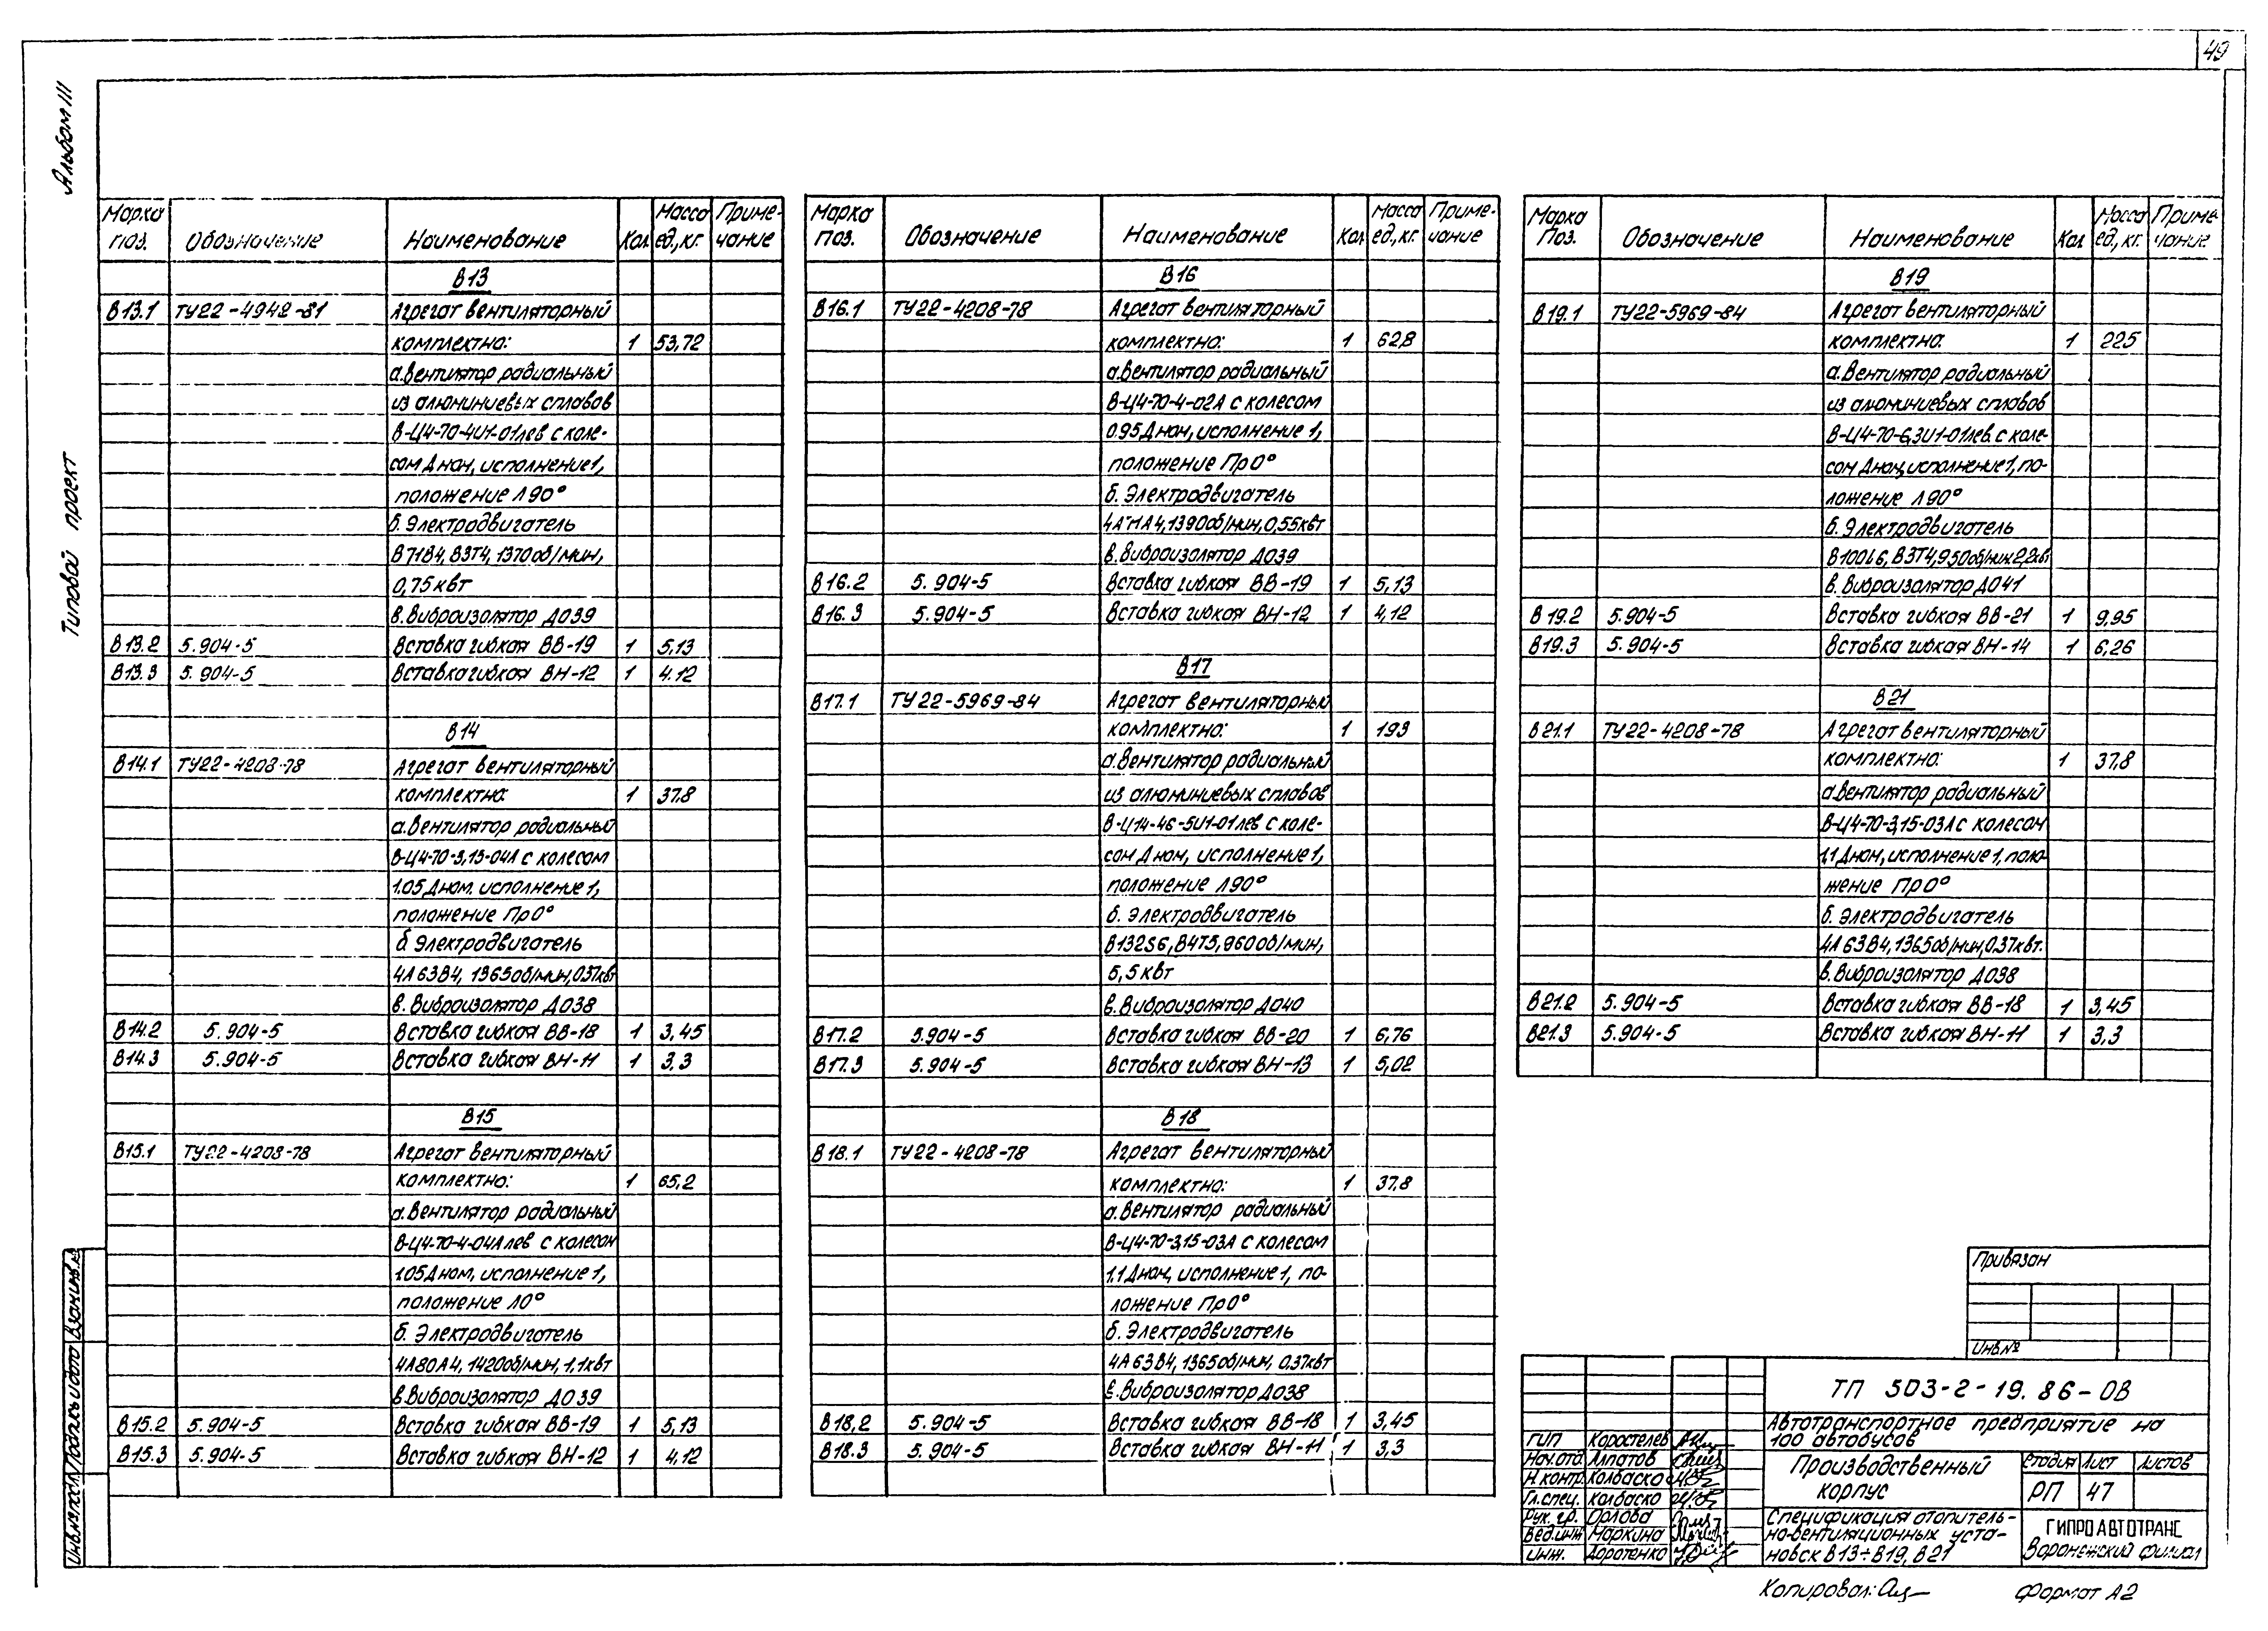 49
Альбом III
Типовой проект
Марка поз. Обозначение Наименование Кол. Масса ед., кг. Примечание
В13
В13.1 ТУ22-4942-81 Агрегат вентиляторный
комплектно: 1 53,72
а.Вентилятор радиальный
из алюминиевых сплавов
В-Ц4-70-4И1-01лев с коле-
сом Дном, исполнение1,
положение Л90°
б. Электродвигатель
В71В4, В3Т4, 1370об/мин,
0,75квт
в.Виброизолятор ДО39
В13.2 5.904-5 Вставка гибкая ВВ-19 1 5,13
В13.3 5.904-5 Вставка гибкая ВН-12 1 4.12
В14
В14.1 ТУ22-4208-78 Агрегат вентиляторный
комплектно: 1 37.8
а.Вентилятор радиальный
В-Ц4-70-3,15-04А с колесом
1.05 Дном. исполнение 1,
положение Пр0°
б Электродвигатель
4А63В4, 1365об/мин,0.37квт
в. Виброизолятор ДО38
В14.2 5.904-5 Вставка гибкая ВВ-18 1 3,45
В14.3 5.904-5 Вставка гибкая ВН-11 1 3,3
В15
В15.1 ТУ22-4208-78 Агрегат вентиляторный
комплектно: 1 65,2
а.Вентилятор радиальный
В-Ц4-70-4-04А лев с колесом
1.05Дном, исполнение 1,
положение Л0°
б. Электродвигатель
4А80А4, 1420об/мин, 1,1квт
в.Виброизолятор ДО39
В15.2 5.904-5 Вставка гибкая ВВ-19 1 5,13
В15.3 5.904-5 Вставка гибкая ВН-12 1 4,12
Марка Поз. Обозначение Наименование Кол Масса ед., кг. Примечание
В16
В16.1 ТУ22-4208-78 Агрегат вентиляторный
комплектно: 1 62,8
а.Вентилятор радиальный
В-Ц4-70-4-02А с колесом
0.95Дном, исполнение 1,
положение Пр0°
б. Электродвигатель
1390об/мин, 0,55квт
в.Виброизолятор ДО39
В16.2 5.904-5 Вставка гибкая ВВ-19 1 5,13
В16.3 5.904-5 Вставка гибкая ВН-12 1 4,12
В17
В17.1 ТУ22-5969-84 Агрегат вентиляторный
комплектно: 1 193
а.Вентилятор радиальный
из алюминиевых сплавов
В-Ц14-46-5И1-01лев с коле-
сом Дном, исполнение 1,
положение Л90°
б. Электродвигатель
В132S6, В4Т5, 960об/мин,
5,5квт
в.Виброизолятор ДО40
В17.2 5.904-5 Вставка гибкая ВВ-20 1 6,76
В17.3 5.904-5 Вставка гибкая ВН-13 1 5,02
В18
В18.1 ТУ22-4208-78 Агрегат вентиляторный
комплектно: 1 37,8
а.Вентилятор радиальный
В-Ц4-70-3,15-03А с колесом
1,1Дном, исполнение 1, по-
ложение Пр0°
б. Электродвигатель
4А63В4, 1365об/мин, 0,37квт
в.Виброизолятор ДО38
В18,2 5.904-5 Вставка гибкая ВВ-18 1 3,45
В18.3 5.904-5 Вставка гибкая ВН-11 1 3,3
Марка Поз. Обозначение Наименование Кол Масса ед, кг. Примечание
В19
В19.1 ТУ22-5969-84 Агрегат вентиляторный
комплектно: 1 225
а.Вентилятор радиальный
из алюминиевых сплавов
В-Ц4-70-6,3И1-01лев. с коле-
сом Дном, исполнение1, по-
ложение Л90°
б. Электродвигатель
В100L6, В3Т4,950об/мин.2,2квт
в. Виброизолятор ДО41
В19.2 5.904-5 Вставка гибкая ВВ-21 1 9,95
В19.3 5.904-5 Вставка гибкая ВН-14 1 6,26
В21
В21.1 ТУ22-4208-78 Агрегат вентиляторный
комплектно: 1 37,8
а.Вентилятор радиальный
В-Ц4-70-3,15-03А с колесом
1,1 Дном, исполнение 1, поло-
жение Пр0°
б. Электродвигатель
4А63В4, 1365об/мин,0.37квт.
в. Виброизолятор ДО38
В21.2 5.904-5 Вставка гибкая ВВ-18 1 3,45
В21.3 5.904-5 Вставка гибкая ВН-11 1 3,3
Привязан
Инв.№
ТП 503-2-19.86-ОВ
Автотранспортное предприятие на
100 автобусов
ГИП Коростелев
Нач.отд. Алпатов
Н.контр. Колбаско
Гл.спец. Колбаско
Рук. гр. Орлова
Вед.инж Маркина
Инж. Доротенко
Производственный
корпус
Стадия Лист Листов
РП 47
Спецификация отопитель-
но-вентиляционных уста-
новок В13÷В19, В21
ГИПРОАВТОТРАНС
Воронежский филиал
Инв.№подл. Подпись и дата Взам.инв.№
Копировал:
формат А2